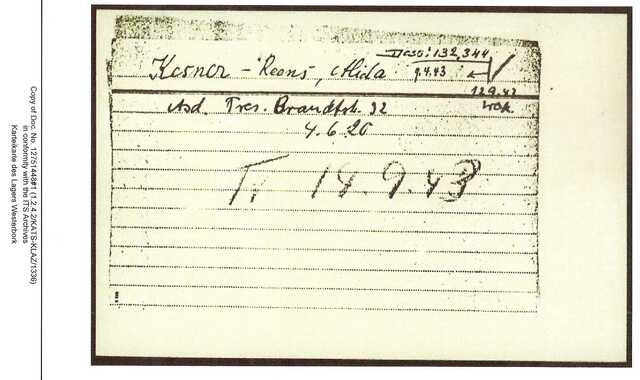 Copy of Doc. No. 12751448#1 (1.2.4.2/KATS-KLAZ/1336)
in conformity with the ITS Archives
Karteikarte des Lagers Westerbork
132,344
Kesner - Reens, Alida
9.4.43
12.9.43
Asd. Pres. Brandtstr. 32
4.6.20
Tr 14.9.43